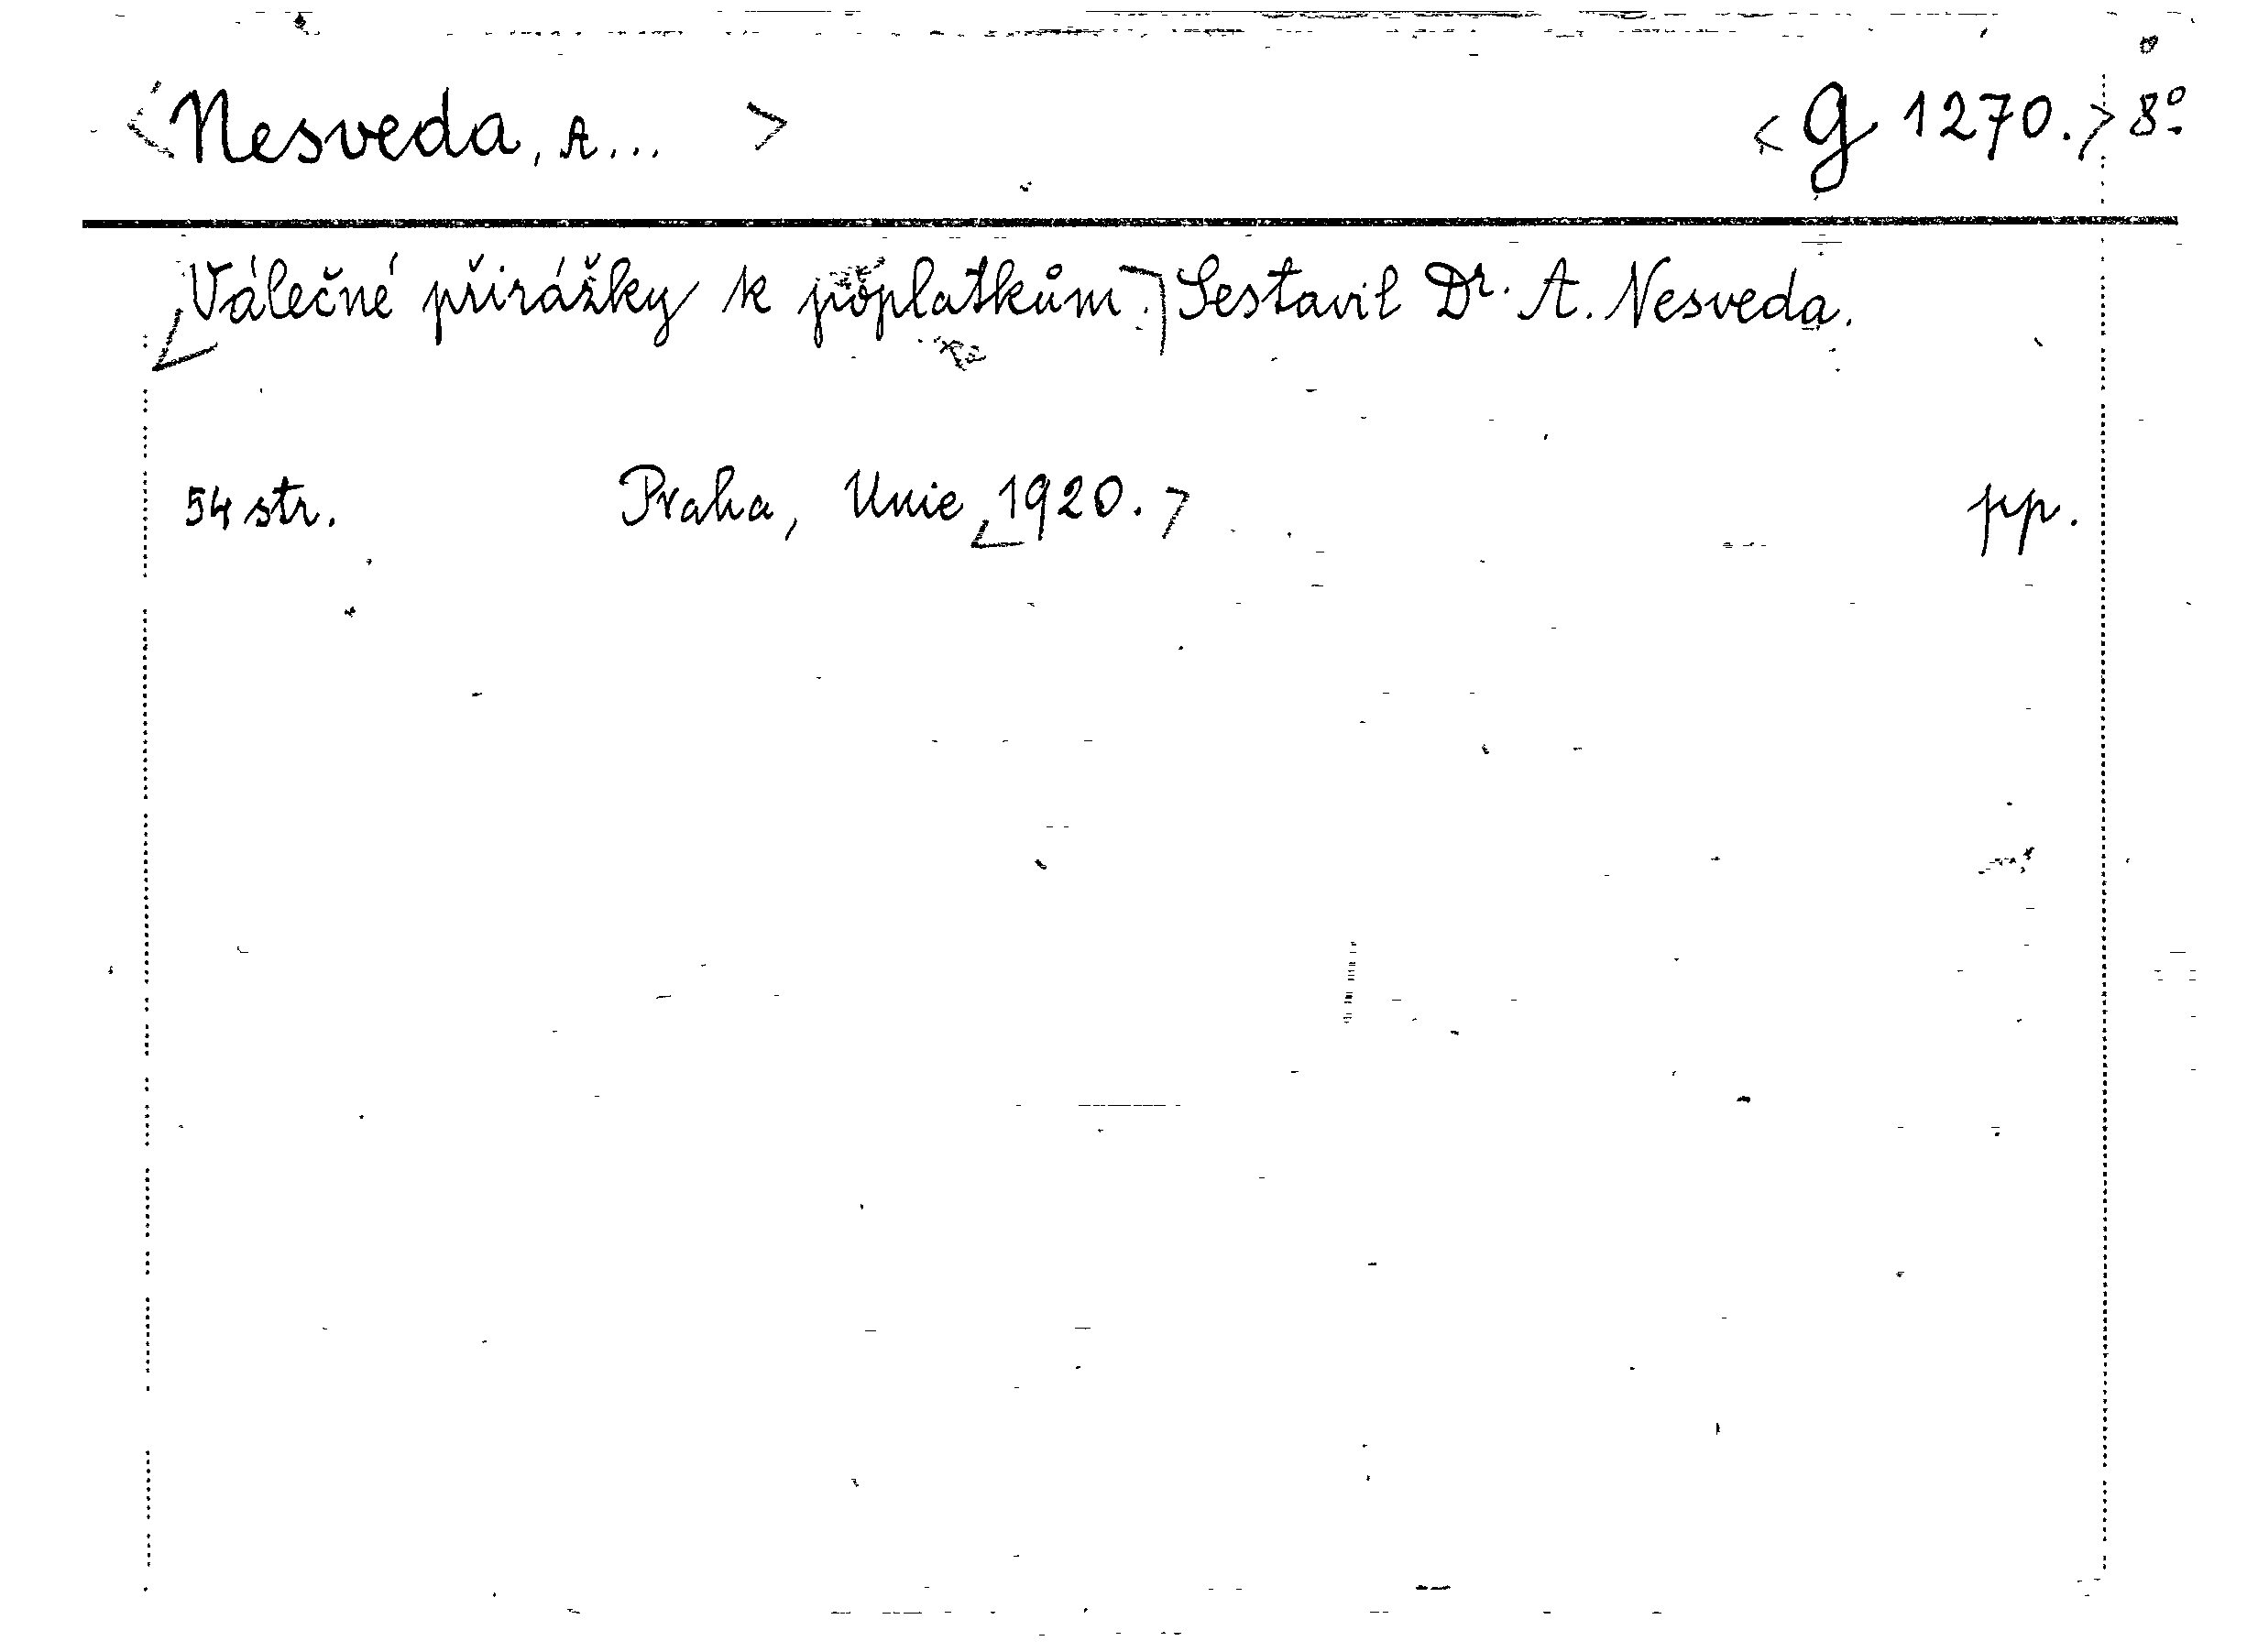 <Nesveda, A... > <G 1270.> 8°
<Válečné přirážky k poplatkům.> Sestavil Dr. A. Nesveda.
54 str. Praha, Unie <1920.> pp.